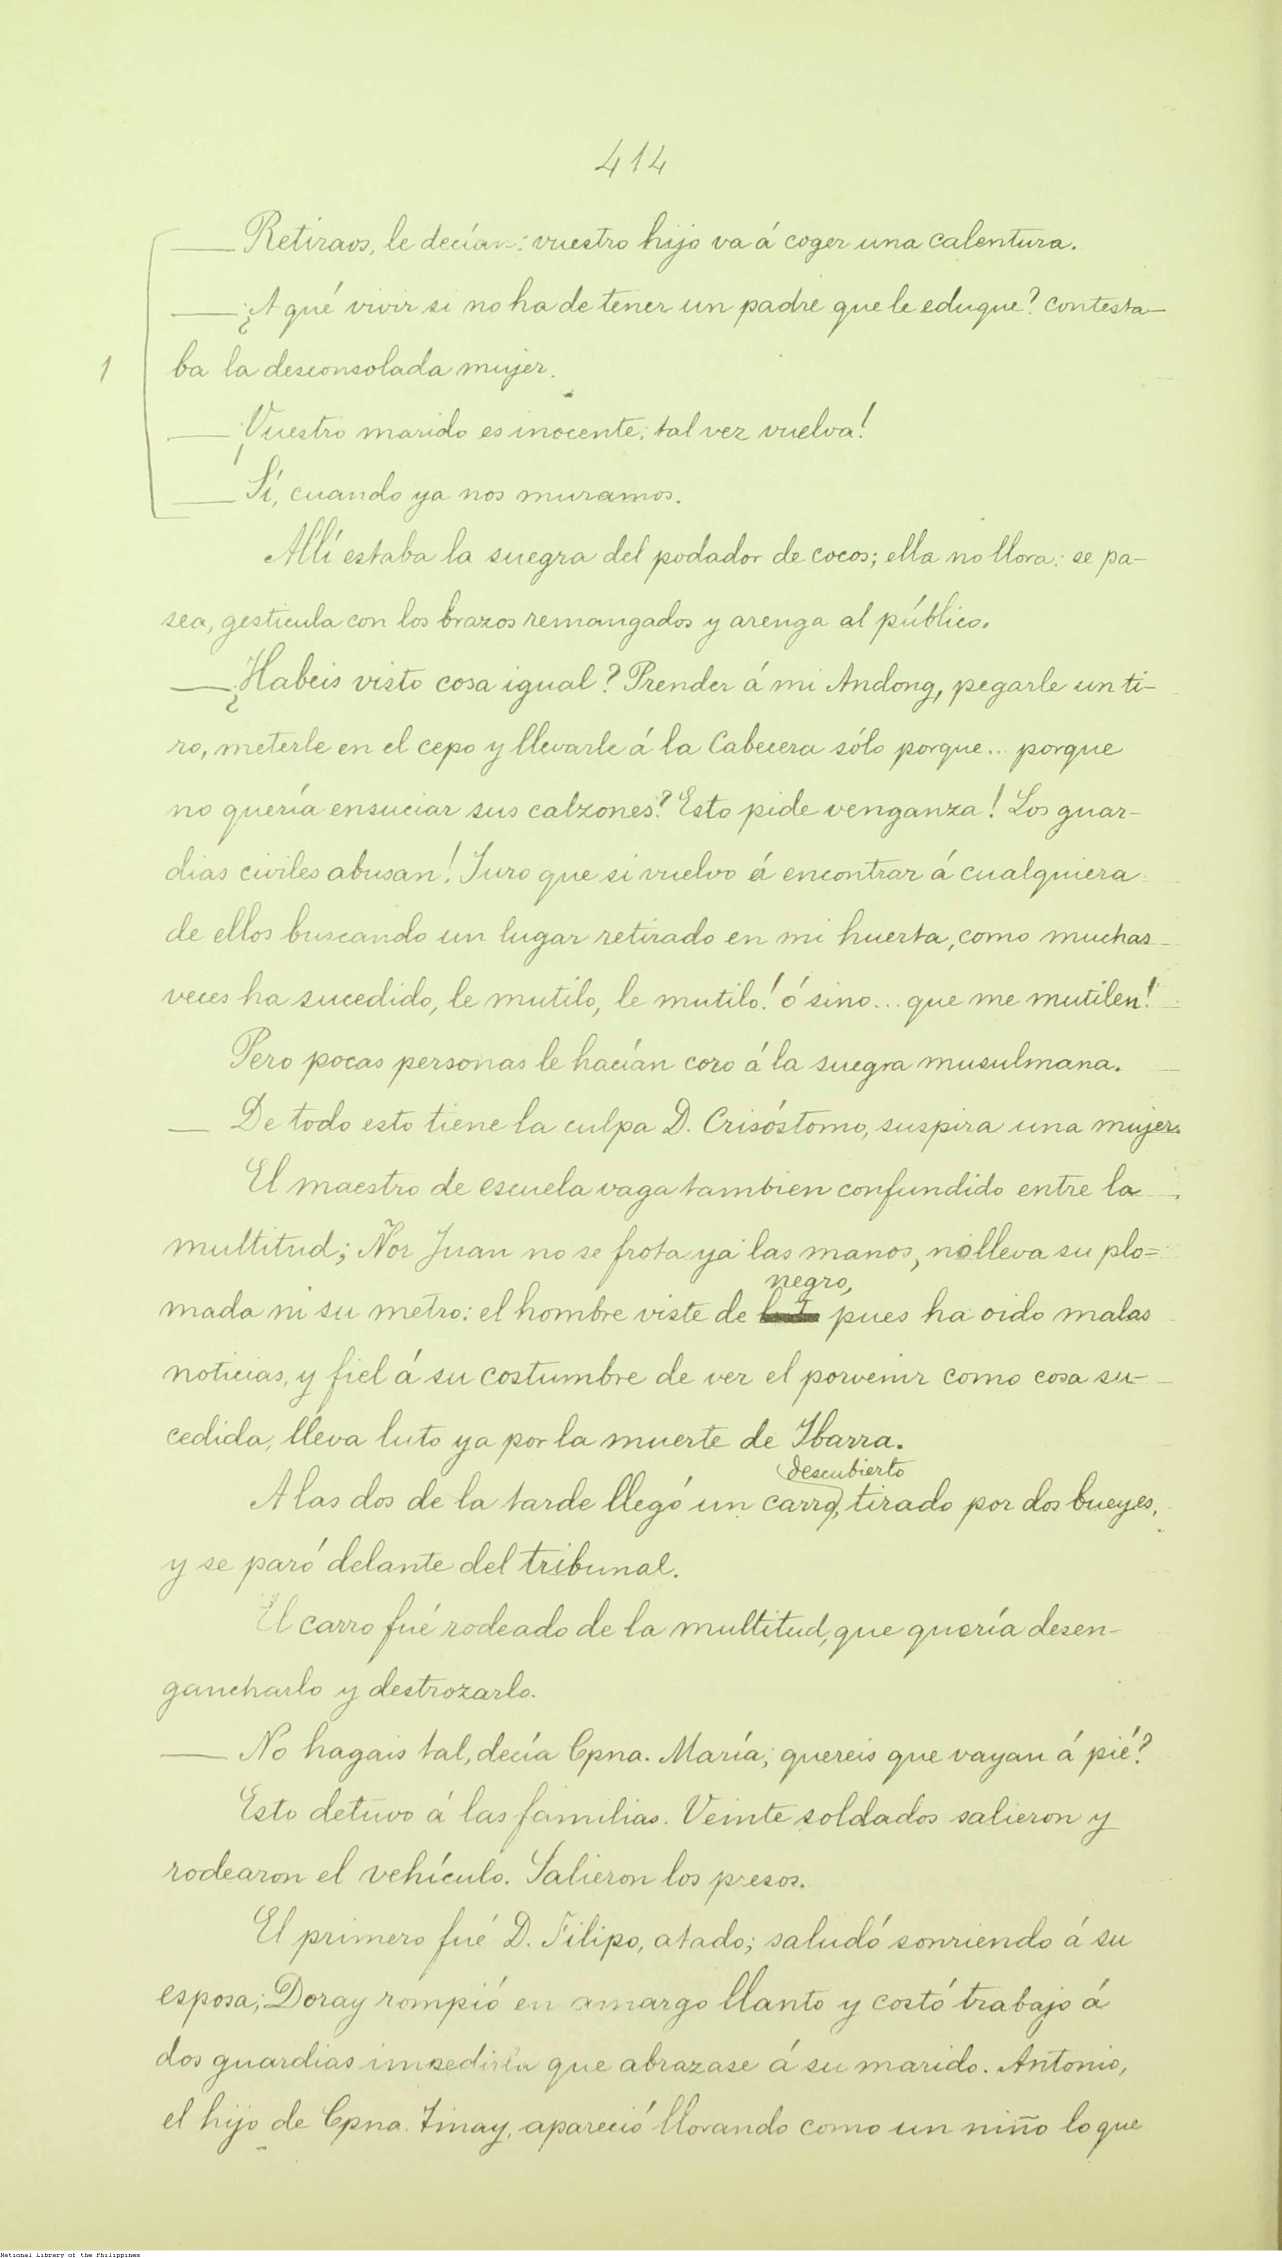 414
— Retiraos, le decían: vuestro hijo va á coger una calentura.
— ¿A qué vivir si no ha de tener un padre que le eduque? contesta-
1
ba la desconsolada mujer.
— ¡Vuestro marido es inocente; tal vez vuelva!
— Sí, cuando ya nos muramos.
Allí estaba la suegra del podador de cocos; ella no llora: se pa-
sea, gesticula con los brazos remangados y arenga al público.
— ¿Habeis visto cosa igual? Prender á mi Andong, pegarle un ti-
ro, meterle en el cepo y llevarle á la Cabecera sólo porque... porque
no quería ensuciar sus calzones? Esto pide venganza! Los guar-
dias civiles abusan! Juro que si vuelvo á encontrar á cualquiera
de ellos buscando un lugar retirado en mi huerta, como muchas
veces ha sucedido, le mutilo, le mutilo! ó sino... que me mutilen!
Pero pocas personas le hacían coro á la suegra musulmana.
— De todo esto tiene la culpa D. Crisóstomo, suspira una mujer.
El maestro de escuela vaga tambien confundido entre la
multitud; Ñor Juan no se frota ya las manos, no lleva su plo=
negro,
mada ni su metro: el hombre viste de pues ha oido malas
noticias, y fiel á su costumbre de ver el porvenir como cosa su-
cedida, lleva luto ya por la muerte de Ibarra.
descubierto
A las dos de la tarde llegó un carro, tirado por dos bueyes,
y se paró delante del tribunal.
El carro fué rodeado de la multitud, que quería desen-
gancharlo y destrozarlo.
— No hagais tal, decía Cpna. María; quereis que vayan á pié?
Esto detuvo á las familias. Veinte soldados salieron y
rodearon el vehículo. Salieron los presos.
El primero fué D. Filipo, atado; saludó sonriendo á su
esposa; Doray rompió en amargo llanto y costó trabajo á
dos guardias impedirla que abrazase á su marido. Antonio,
el hijo de Cpna. Tinay, apareció llorando como un niño lo que
National Library of the Philippines